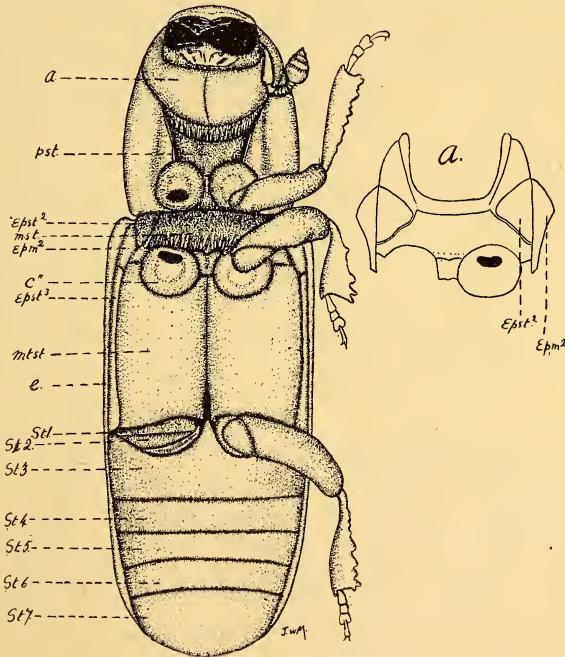 a
pst.
Epst²
mst.
Epm²
C"
Epst³
mtst
e.
St1.
St2.
St3
St4
St5.
St6
St7
J.W.M.
a.
Epst²
Epm²